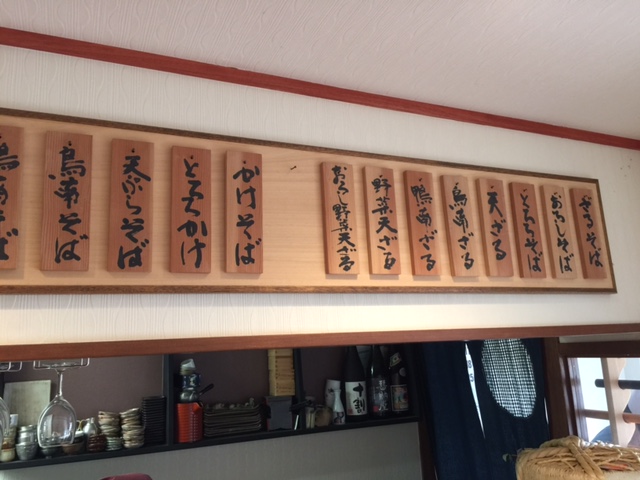 ざるそば
おろしそば
とろろそば
天ざる
鳥南ざる
鴨南ざる
野菜天ざる
おろし野菜天ざる
かけそば
とろろかけ
天ぷらそば
鳥南そば
鴨南そば